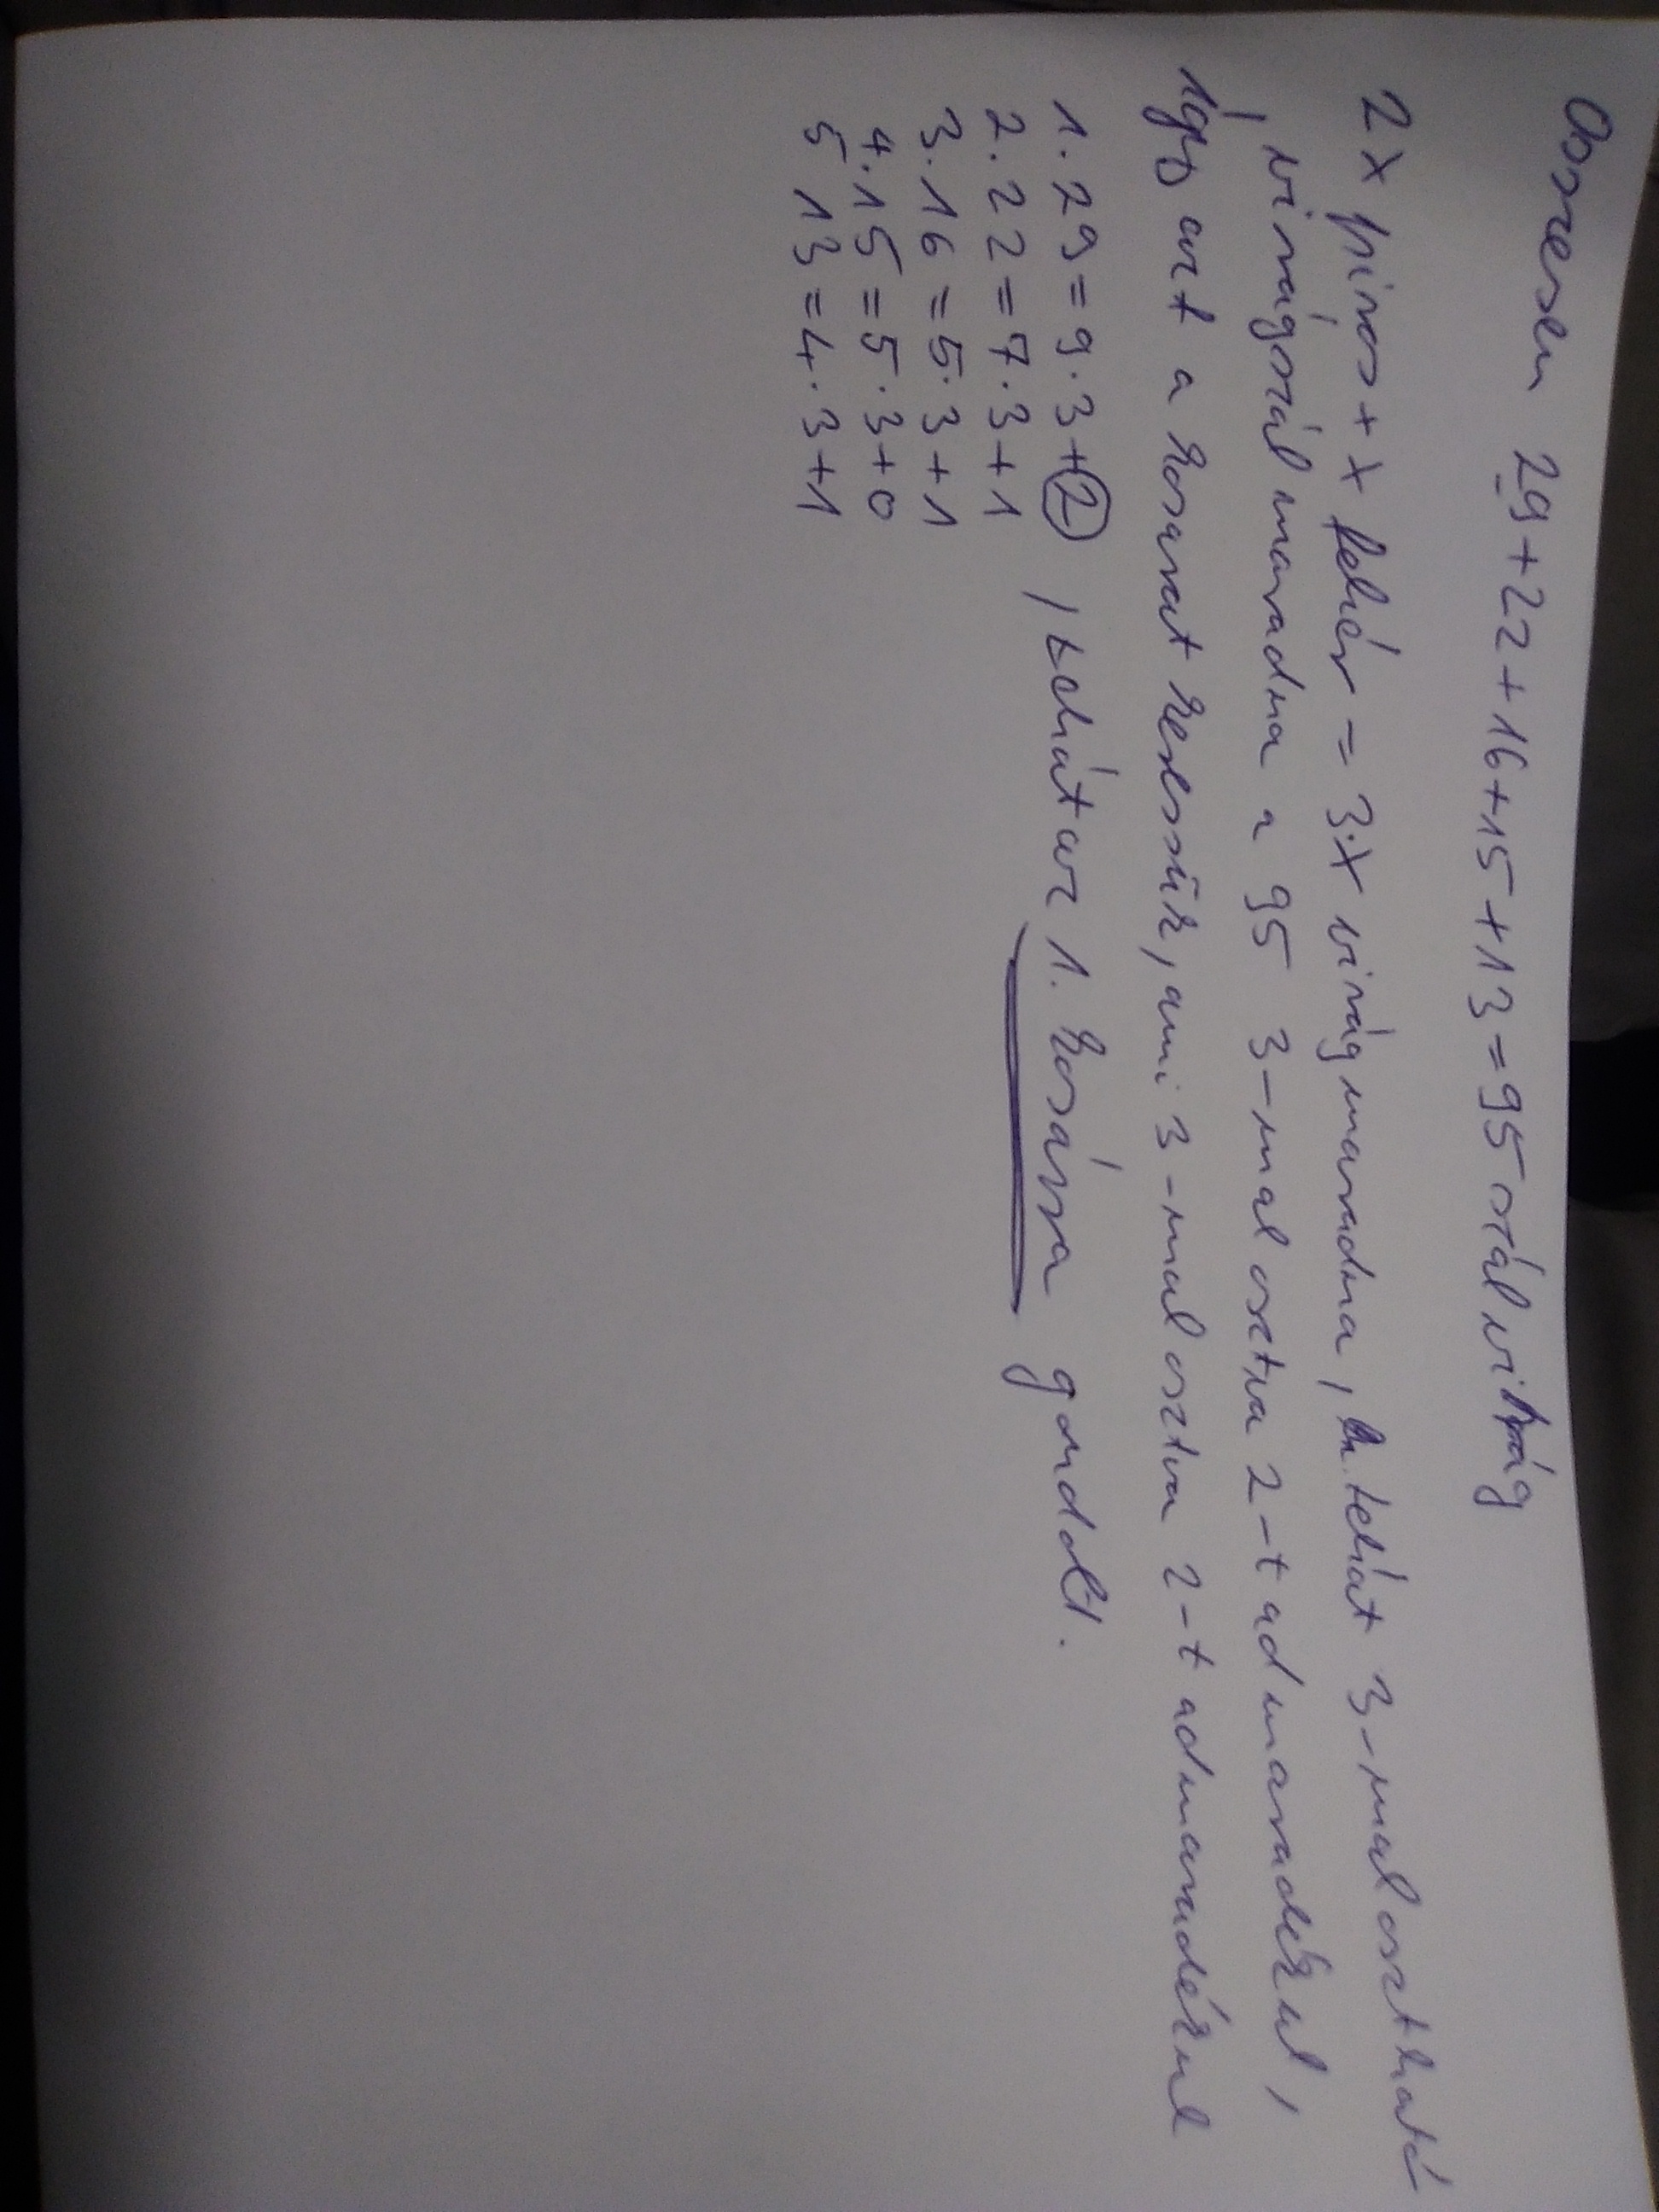 Összesen 29+22+16+15+13=95 szál virág
2x piros + x fehér = 3·x virág maradna, tehát 3-mal osztható
virágszál maradna a 95 3-mal osztva 2-t ad maradékul,
így azt a kosarat keressük, ami 3-mal osztva 2-t ad maradékul
1. 29=9·3+2 , tehát az 1. kosárra gondolt.
2. 22=7·3+1
3. 16=5·3+1
4. 15=5·3+0
5 13=4·3+1